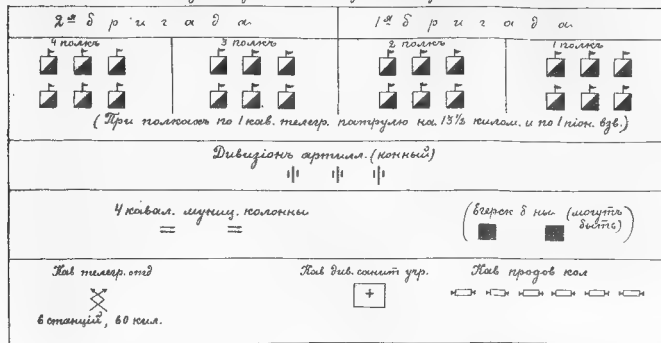 2я бригада 1я бригада
4 полкъ 3 полкъ 2 полкъ 1 полкъ
(При полкахъ по 1 кав. телегр. патрулю на 13½ килом. и по 1 піон. взв.)
Дивизіонъ артилл. (конный)
4 кавал. муниц. колонны
(Егерск б ны (могутъ
быть)
Кав телегр. отд Кав див. санит учр. Кав продов кол
6 станцій, 60 кил.